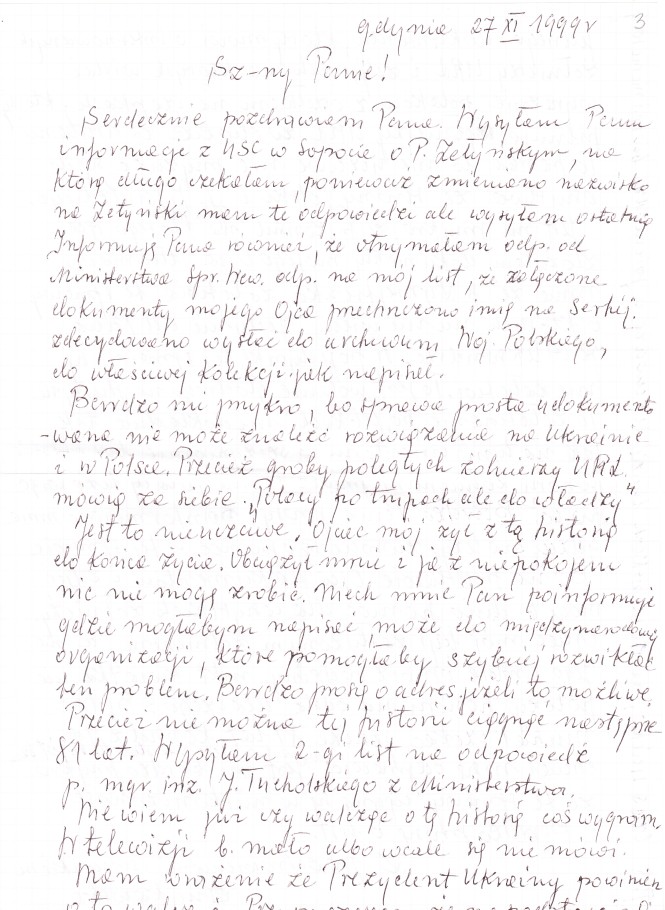 Gdynia 27 XI 1999r 3
Sz-ny Panie!
Serdecznie pozdrawiam Pana. Wysyłam Panu
informację z USC w Sopocie o P. Żełyńskym, na
którą długo czekałam, ponieważ zmieniono nazwisko
na Żetyński mam te odpowiedzi ale wysyłam ostatnią
Informuję Pana również, że otrzymałam odp. od
Ministerstwa Spr. Wew. odp. na mój list, że załączone
dokumenty mojego Ojca przechrzczono imię na Serhij.
zdecydowano wysłać do archiwum Woj. Polskiego,
do właściwej kolekcji. jak napisał.
Bardzo mi przykro, bo sprawa prosta udokumento
-wana nie może znaleźć rozwiązania na Ukrainie
i w Polsce. Przecież groby poległych żołnierzy URL
mówią za siebie. "Polacy po trupach ale do władzy"
Jest to nieuczciwe. Ojciec mój żył z tą historią
do końca życia. Obciążył mnie i ja z niepokojem
nic nie mogę zrobić. Niech mnie Pan poinformuje
gdzie mogłabym napisać, może do międzynarodowej
organizacji, które pomogłaby szybciej rozwikłać
ten problem. Bardzo proszę o adres jeżeli to możliwe.
Przecież nie można tej historii ciągnąć następne
81 lat. Wysyłam 2-gi list na odpowiedź
p. mgr. inż. J. Tucholskiego z Ministerstwa.
Nie wiem już czy walcząc o tę historię coś wygram,
W telewizji b. mało albo wcale się nie mówi.
Mam wrażenie że Prezydent Ukrainy powinien